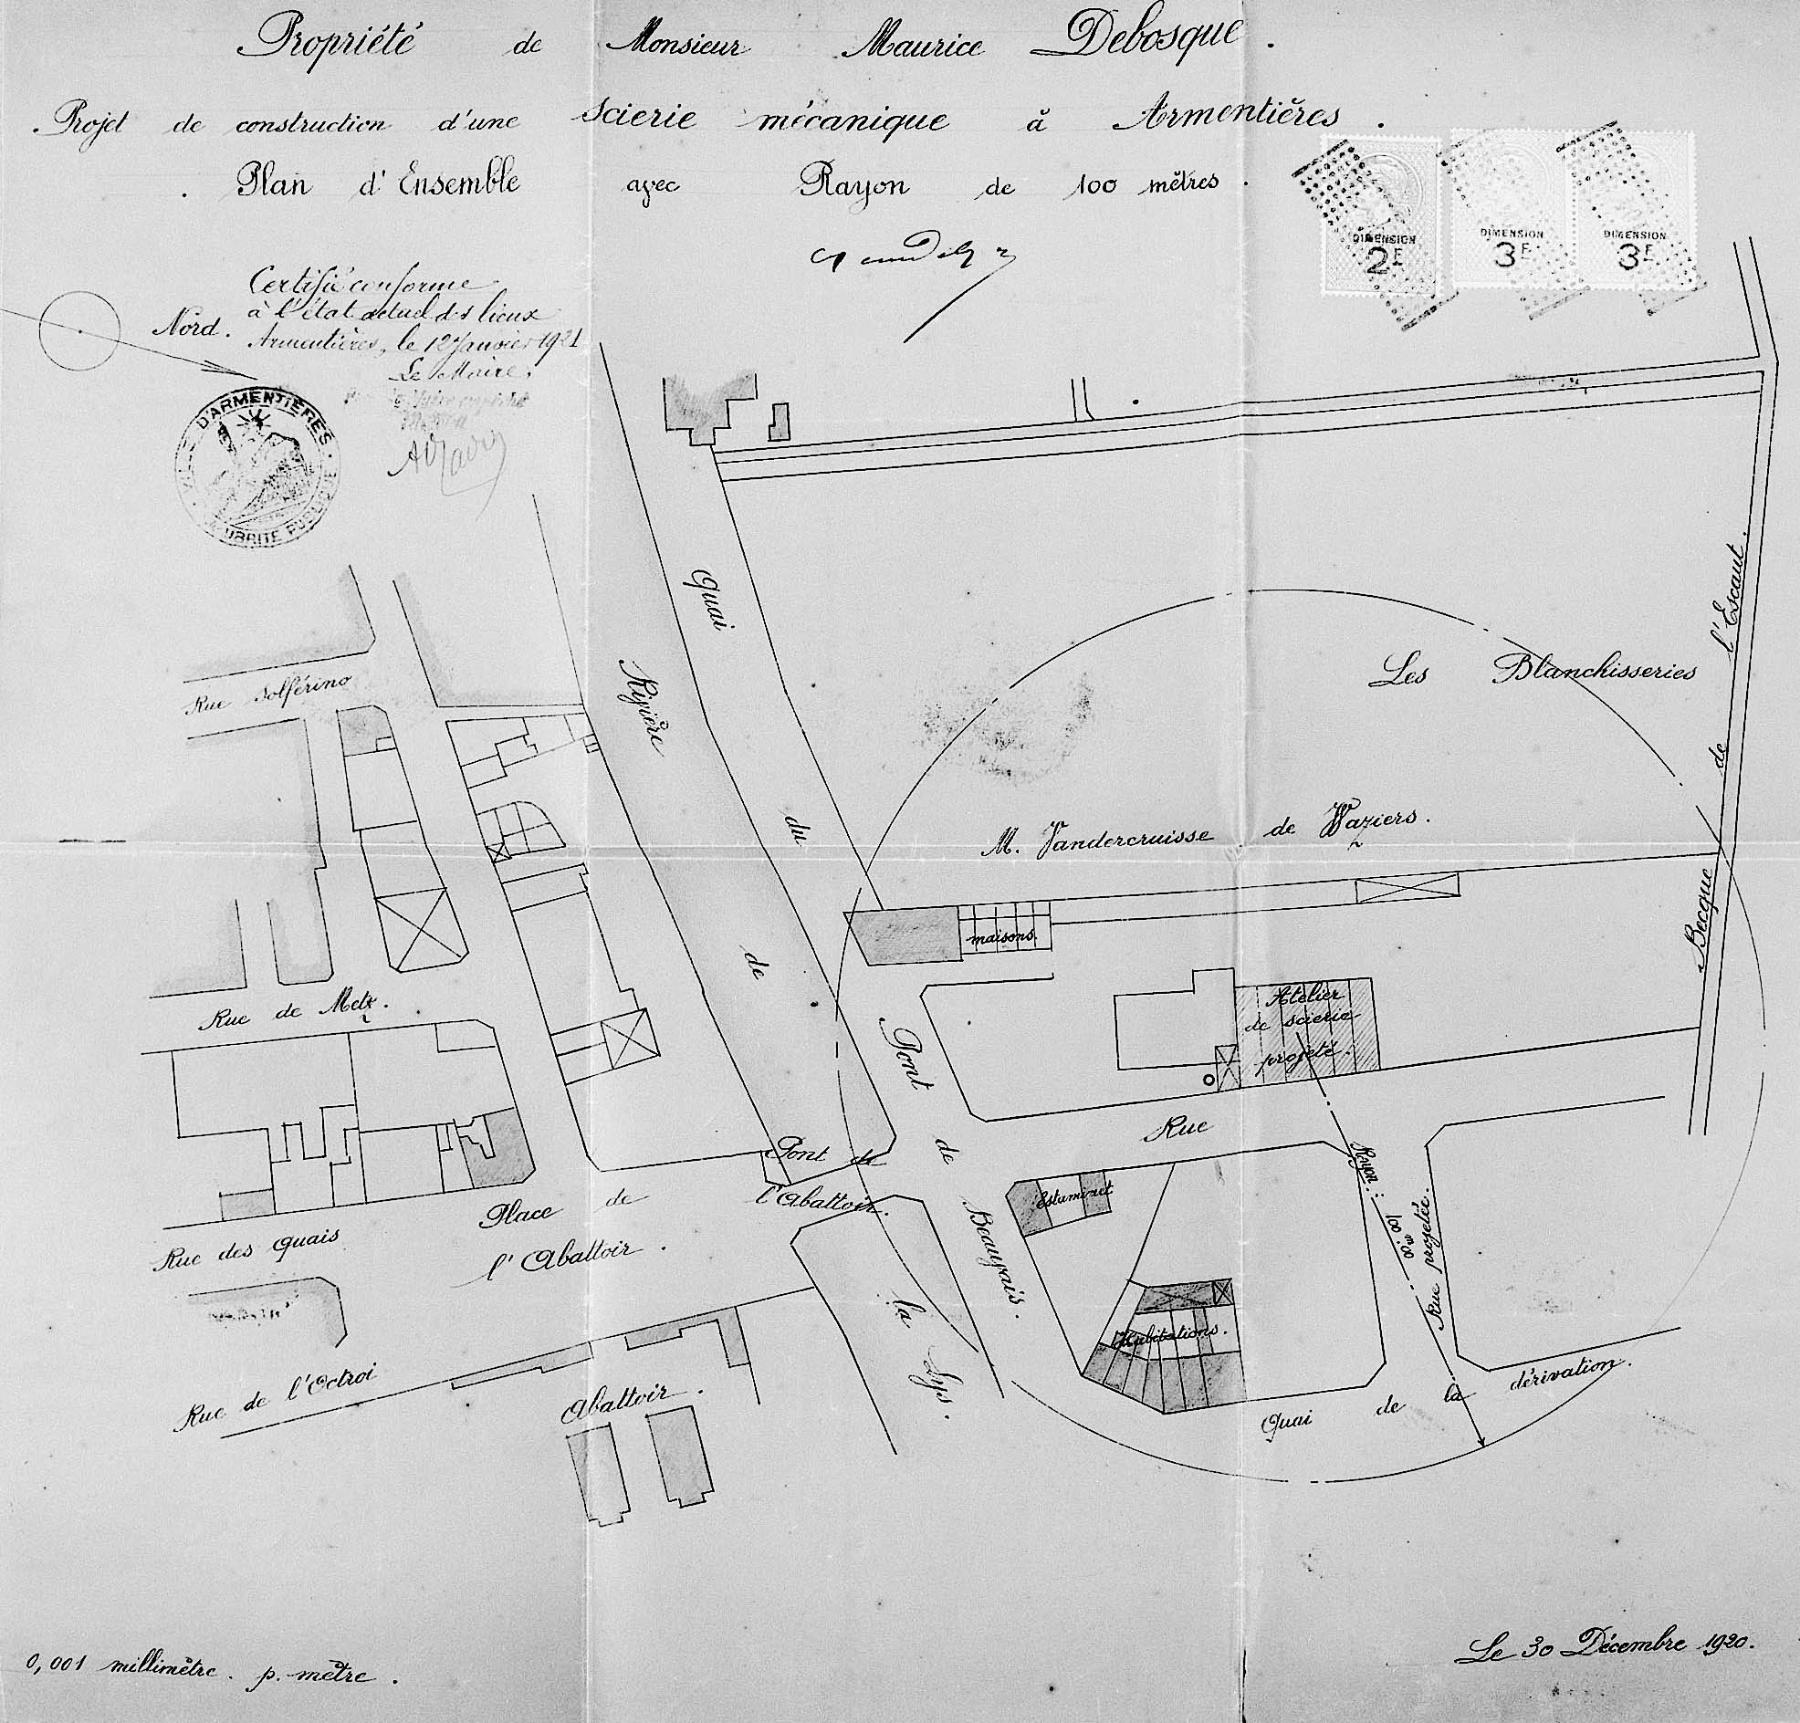 Propriété de Monsieur Maurice Debosque.
Projet de construction d'une scierie mécanique à Armentières.
Plan d'Ensemble avec Rayon de 100 mètres.
DIMENSION
2F
DIMENSION
3F
DIMENSION
3F
Certifié conforme
à l'état actuel des lieux
Armentières, le 12 Janvier 1921
Le Maire,
Nord.
D'ARMENTIÈRES
PUBLIQUE
Rue Solférino
Rivière de la Lys.
Quai du Pont de Beauvais.
Les Blanchisseries
M. Vandercruisse de Waziers.
Becque de l'Escaut.
maisons.
Atelier
de scierie
projeté.
Rue de Metz.
Rue
Pont de
l'Abattoir.
Place de
l'Abattoir.
Estaminet
Rayon: 100m00
Rue projetée.
Rue des Quais
Habitations.
Rue de l'Octroi
Abattoir.
Quai de la dérivation.
0,001 millimètre. p. mètre.
Le 30 Décembre 1920.